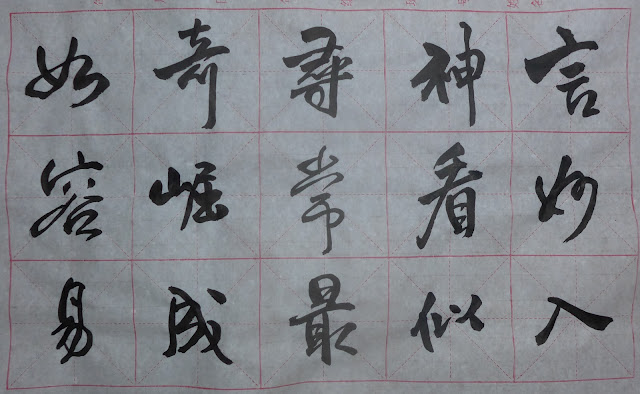 言妙入
神看似
尋常最
奇崛成
如容易